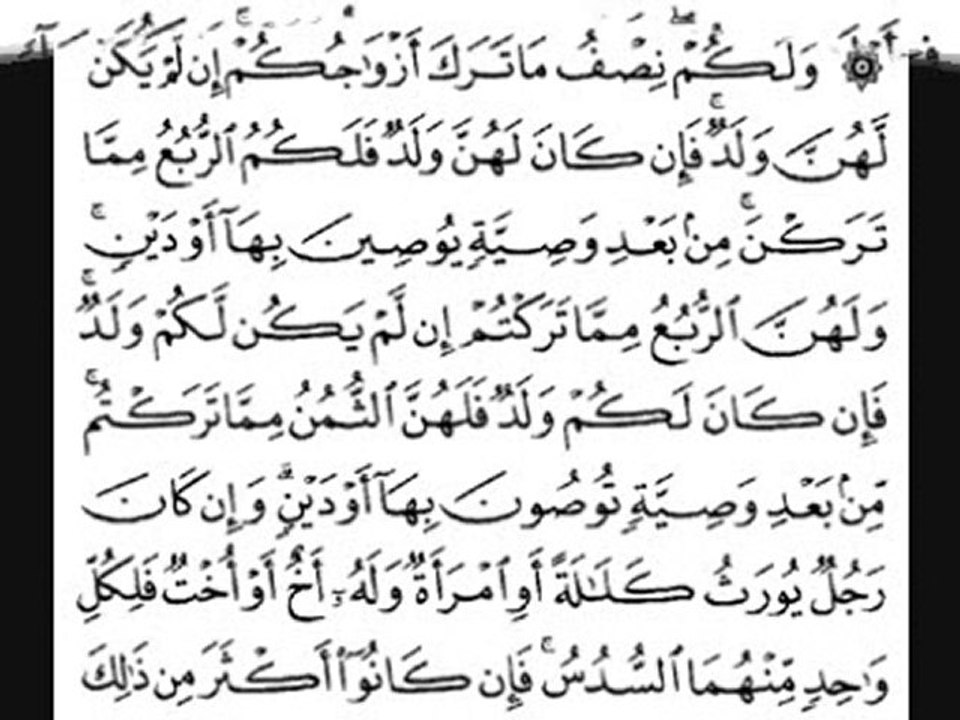 ۞ وَلَكُمْ نِصْفُ مَا تَرَكَ أَزْوَٰجُكُمْ إِن لَّمْ يَكُن
لَّهُنَّ وَلَدٌ ۚ فَإِن كَانَ لَهُنَّ وَلَدٌ فَلَكُمُ ٱلرُّبُعُ مِمَّا
تَرَكْنَ ۚ مِنۢ بَعْدِ وَصِيَّةٍ يُوصِينَ بِهَآ أَوْ دَيْنٍ ۚ
وَلَهُنَّ ٱلرُّبُعُ مِمَّا تَرَكْتُمْ إِن لَّمْ يَكُن لَّكُمْ وَلَدٌ ۚ
فَإِن كَانَ لَكُمْ وَلَدٌ فَلَهُنَّ ٱلثُّمُنُ مِمَّا تَرَكْتُم ۚ
مِّنۢ بَعْدِ وَصِيَّةٍ تُوصُونَ بِهَآ أَوْ دَيْنٍ ۗ وَإِن كَانَ
رَجُلٌ يُورَثُ كَلَـٰلَةً أَوِ ٱمْرَأَةٌ وَلَهُۥٓ أَخٌ أَوْ أُخْتٌ فَلِكُلِّ
وَٰحِدٍ مِّنْهُمَا ٱلسُّدُسُ ۚ فَإِن كَانُوٓا۟ أَكْثَرَ مِن ذَٰلِكَ